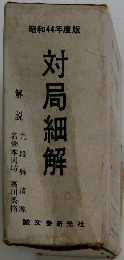 昭和44年度版
対局細解
解説
九段 呉清源
名誉本因坊 高川秀格
誠文堂新光社